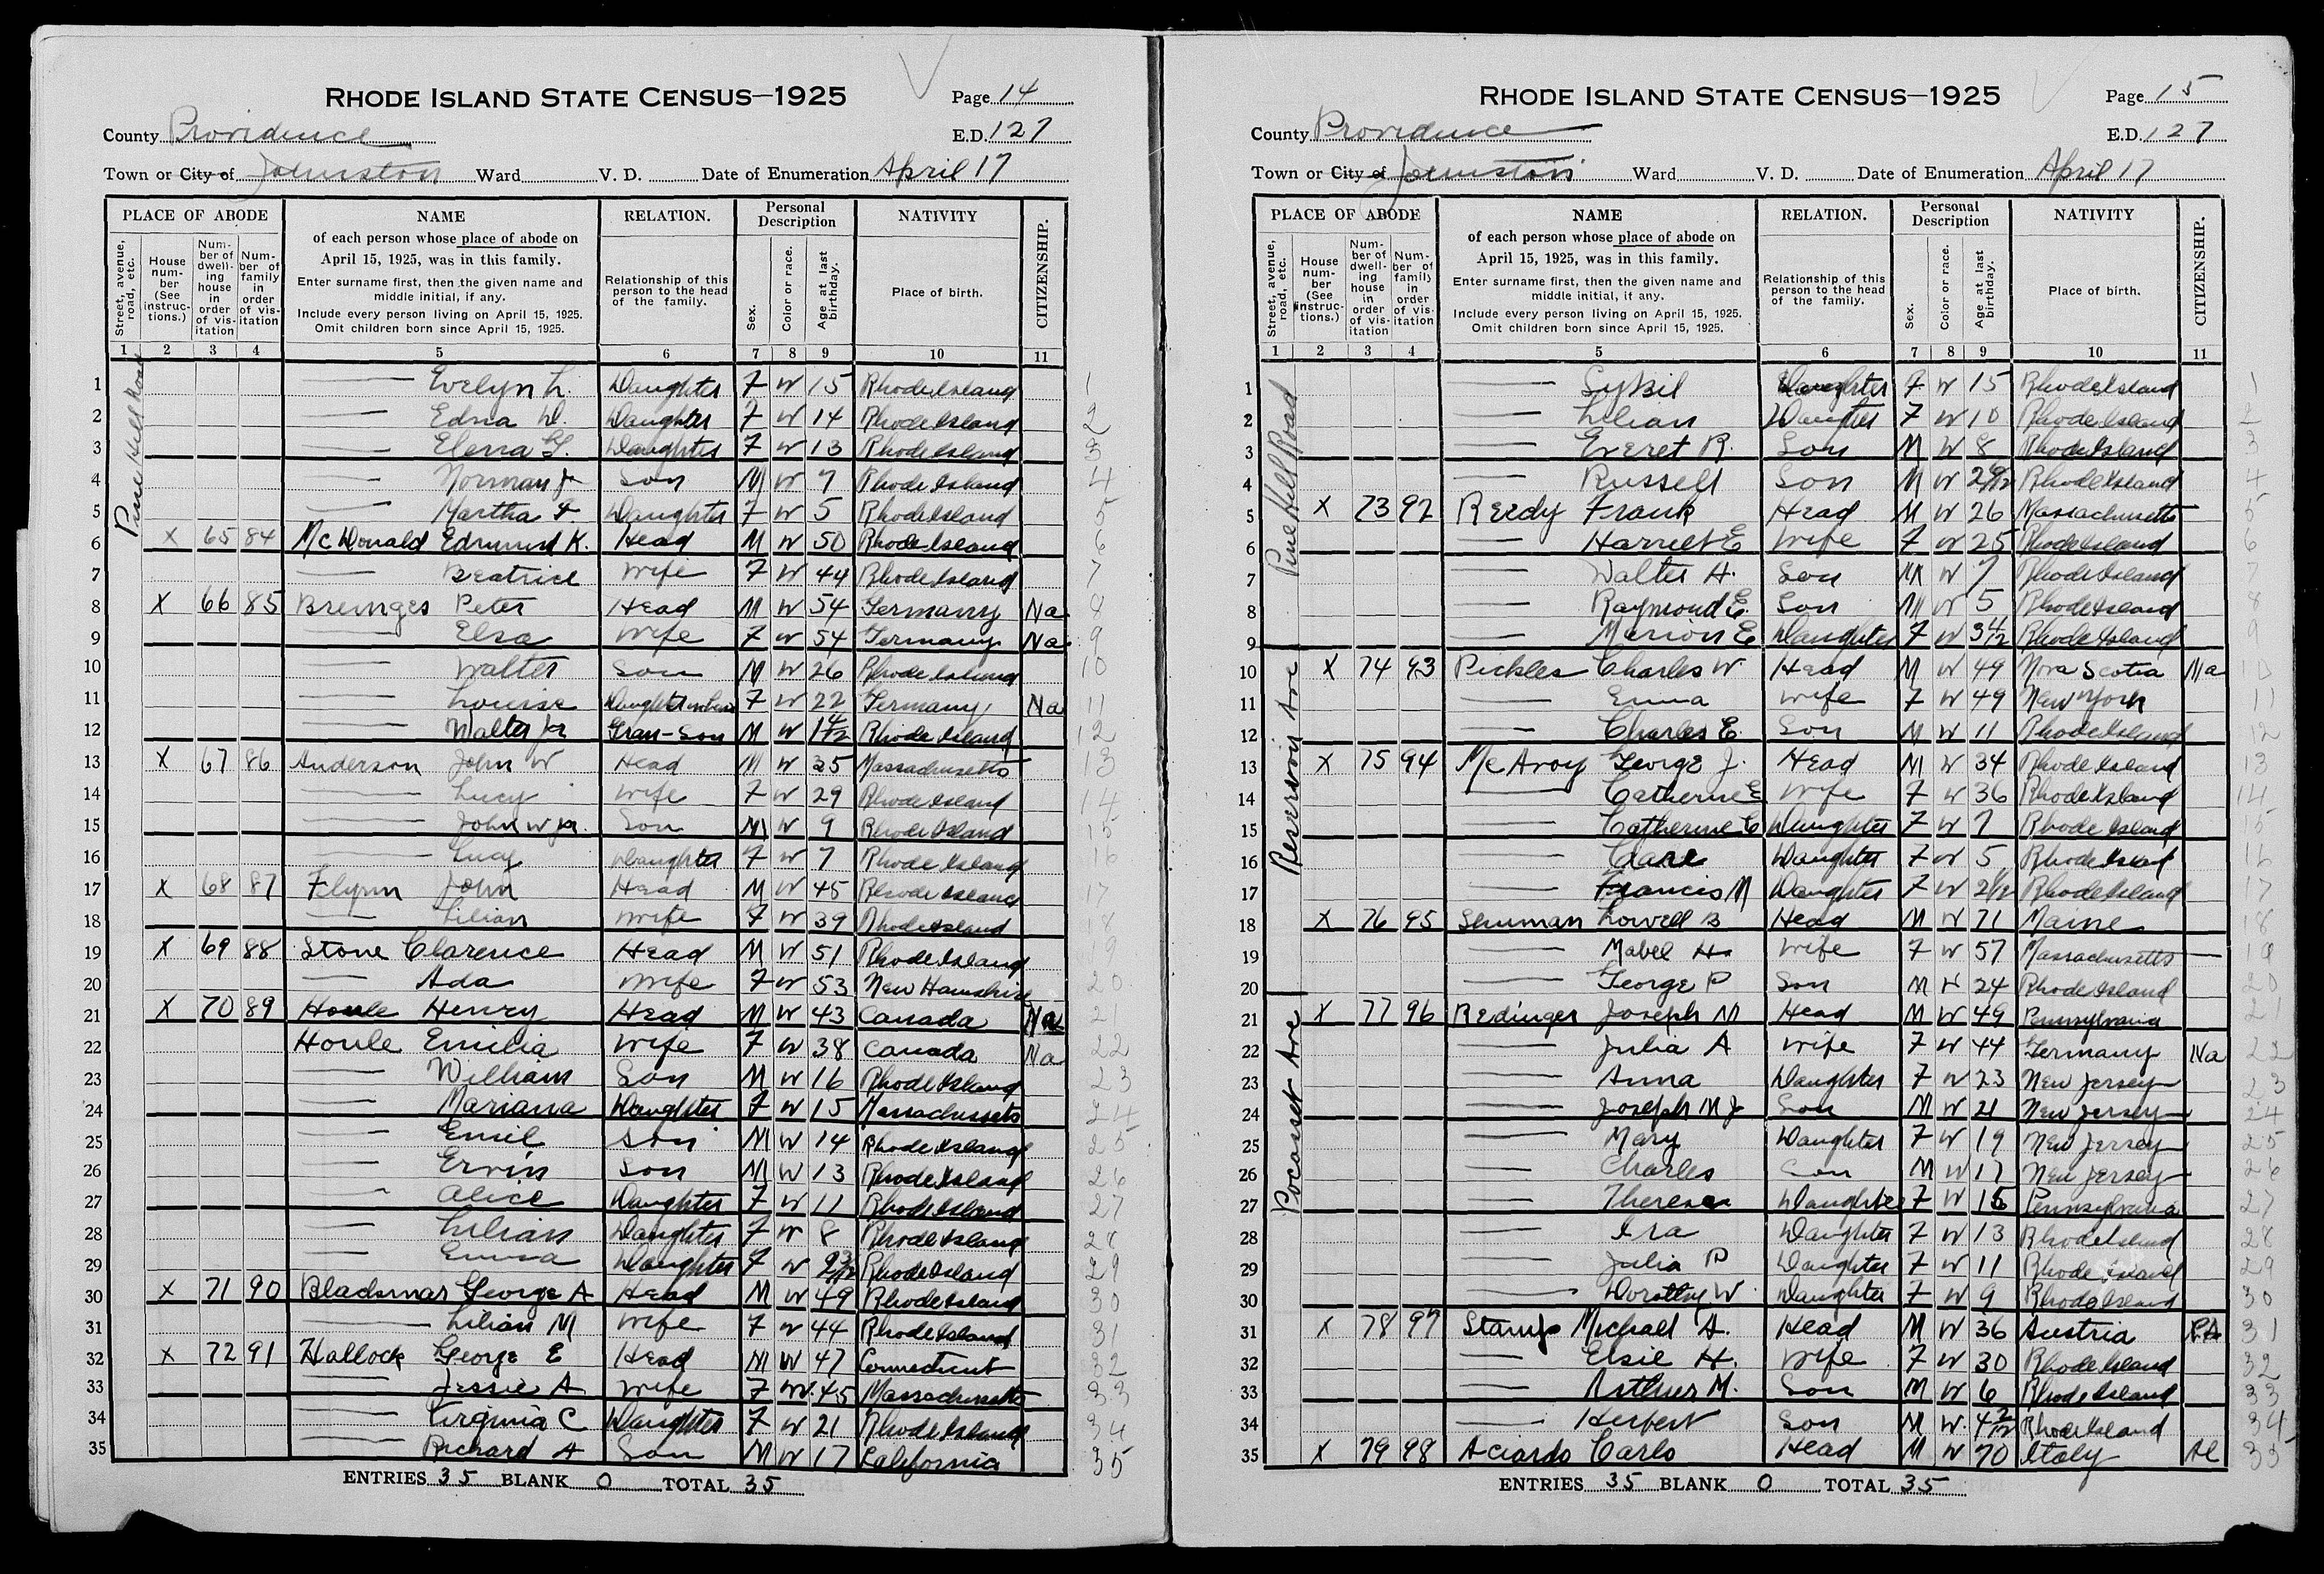 RHODE ISLAND STATE CENSUS—1925
Page 14
County Providence
E.D. 127
Town or City of Johnston Ward V. D. Date of Enumeration April 17
PLACE OF ABODE NAME RELATION. Personal Description NATIVITY CITIZENSHIP.
Street, avenue, road, etc.
House number (See instructions.)
Number of dwelling house in order of visitation
Number of family in order of visitation
of each person whose place of abode on
April 15, 1925, was in this family.
Enter surname first, then the given name and
middle initial, if any.
Include every person living on April 15, 1925.
Omit children born since April 15, 1925.
Relationship of this
person to the head
of the family.
Sex.
Color or race.
Age at last birthday.
Place of birth.
1 2 3 4 5 6 7 8 9 10 11
Pine Hill Road
1 —— Evelyn L. Daughter F W 15 Rhode Island 1
2 —— Edna D. Daughter F W 14 Rhode Island 2
3 —— Elena G. Daughter F W 13 Rhode Island 3
4 —— Norman Jr Son M W 7 Rhode Island 4
5 —— Martha F. Daughter F W 5 Rhode Island 5
6 X 65 84 McDonald Edmund K. Head M W 50 Rhode Island 6
7 —— Beatrice Wife F W 44 Rhode Island 7
8 X 66 85 Breinges Peter Head M W 54 Germany Na 8
9 —— Elsa Wife F W 54 Germany Na 9
10 —— Walter Son M W 26 Rhode Island 10
11 —— Louise Daughter in Law F W 22 Germany Na 11
12 —— Walter Jr Gran-Son M W 1 4/12 Rhode Island 12
13 X 67 86 Anderson John W Head M W 35 Massachusetts 13
14 —— Lucy Wife F W 29 Rhode Island 14
15 —— John W Jr. Son M W 9 Rhode Island 15
16 —— Lucy Daughter F W 7 Rhode Island 16
17 X 68 87 Flynn John Head M W 45 Rhode Island 17
18 —— Lilian Wife F W 39 Rhode Island 18
19 X 69 88 Stone Clarence Head M W 51 Rhode Island 19
20 —— Ada Wife F W 53 New Hamshire 20
21 X 70 89 Houle Henry Head M W 43 Canada Na 21
22 Houle Emilia Wife F W 38 Canada Na 22
23 —— William Son M W 16 Rhode Island 23
24 —— Mariana Daughter F W 15 Massachusetts 24
25 —— Emil Son M W 14 Rhode Island 25
26 —— Ervin Son M W 13 Rhode Island 26
27 —— Alice Daughter F W 11 Rhode Island 27
28 —— Lilian Daughter F W 8 Rhode Island 28
29 —— Emma Daughter F W 2 3/12 Rhode Island 29
30 X 71 90 Blackmar George A Head M W 49 Rhode Island 30
31 —— Lilian M Wife F W 44 Rhode Island 31
32 X 72 91 Hallock George E Head M W 47 Connecticut 32
33 —— Jessie A Wife F W 45 Massachusetts 33
34 —— Virginia C Daughter F W 21 Rhode Island 34
35 —— Richard A Son M W 17 California 35
ENTRIES 35 BLANK 0 TOTAL 35
RHODE ISLAND STATE CENSUS—1925
Page 15
County Providence
E.D. 127
Town or City of Johnston Ward V. D. Date of Enumeration April 17
PLACE OF ABODE NAME RELATION. Personal Description NATIVITY CITIZENSHIP.
Street, avenue, road, etc.
House number (See instructions.)
Number of dwelling house in order of visitation
Number of family in order of visitation
of each person whose place of abode on
April 15, 1925, was in this family.
Enter surname first, then the given name and
middle initial, if any.
Include every person living on April 15, 1925.
Omit children born since April 15, 1925.
Relationship of this
person to the head
of the family.
Sex.
Color or race.
Age at last birthday.
Place of birth.
1 2 3 4 5 6 7 8 9 10 11
Pine Hill Road
1 —— Sybil Daughter F W 15 Rhode Island 1
2 —— Lilian Daughter F W 10 Rhode Island 2
3 —— Everet R. Son M W 8 Rhode Island 3
4 —— Russell Son M W 2 9/12 Rhode Island 4
5 X 73 92 Reedy Frank Head M W 26 Massachusetts 5
6 —— Harriet E Wife F W 25 Rhode Island 6
7 —— Walter H. Son M W 7 Rhode Island 7
8 —— Raymond E. Son M W 5 Rhode Island 8
9 —— Marion E Daughter F W 3 4/12 Rhode Island 9
Reservoir Ave
10 X 74 93 Pickles Charles W Head M W 49 Nova Scotia Na 10
11 —— Emma Wife F W 49 New York 11
12 —— Charles E. Son M W 11 Rhode Island 12
13 X 75 94 McAvoy George J. Head M W 34 Rhode Island 13
14 —— Catherine E Wife F W 36 Rhode Island 14
15 —— Catherine C Daughter F W 7 Rhode Island 15
16 —— Clare Daughter F W 5 Rhode Island 16
17 —— Francis M Daughter F W Rhode Island 17
18 X 76 95 Shuman Lowell B Head M W 71 Maine 18
19 —— Mabel H. Wife F W 57 Massachusetts 19
20 —— George P Son M W 24 Rhode Island 20
Pocasset Ave
21 X 77 96 Redinger Joseph M Head M W 49 Pennsylvania 21
22 —— Julia A Wife F W 44 Germany Na 22
23 —— Anna Daughter F W 23 New Jersey 23
24 —— Joseph M Jr Son M W 21 New Jersey 24
25 —— Mary Daughter F W 19 New Jersey 25
26 —— Charles Son M W 17 New Jersey 26
27 —— Theresa Daughter F W 15 Pennsylvania 27
28 —— Ira Daughter F W 13 Rhode Island 28
29 —— Julia P Daughter F W 11 Rhode Island 29
30 —— Dorothy W Daughter F W 9 Rhode Island 30
31 X 78 97 Stamp Michael A. Head M W 36 Austria PA 31
32 —— Elsie H. Wife F W 30 Rhode Island 32
33 —— Arthur M. Son M W 6 Rhode Island 33
34 —— Herbert Son M W 4 2/12 Rhode Island 34
35 X 79 98 Aciardo Carlo Head M W 70 Italy Al 35
ENTRIES 35 BLANK 0 TOTAL 35